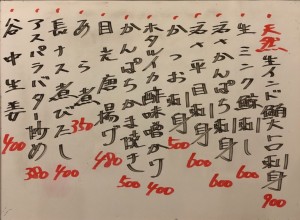 天然生インド鮪大トロ刺身 900
生ミンク鯨刺 600
活〆かんぱち刺身 600
活〆平目刺身 600
かつお刺身 500
ホタルイカ酢味噌かけ 400
かんぱちかま焼き 500
目光唐揚げ 480
あら煮 350
長ナス煮びたし 400
アスパラバター炒め 380
谷中生姜 400